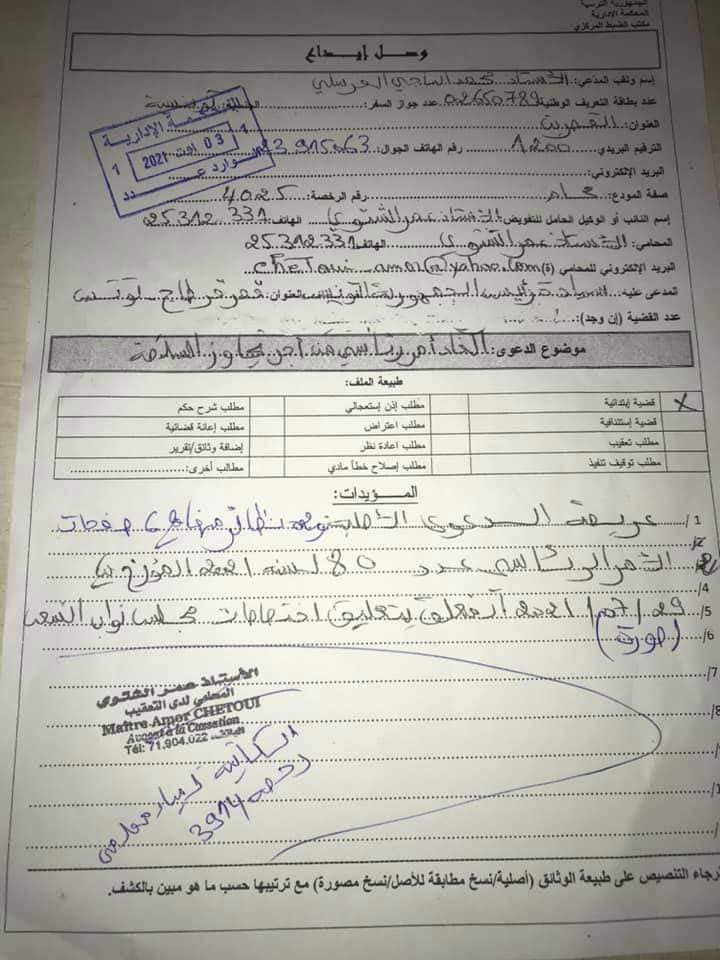 الجمهورية التونسية
المحكمة الإدارية
مكتب الضبط المركزي
وصل إيداع
إسم ولقب المدعي: الأستاذ محمد الناجي الغرسلي
عدد بطاقة التعريف الوطنية 02650789 عدد جواز السفر:
العنوان:
الترقيم البريدي 1200 رقم الهاتف الجوال: 23.915063
البريد الإلكتروني:
صفة المودع: محام رقم الرخصة: 4025
إسم النائب أو الوكيل الحامل للتفويض: الأستاذ عمر الشتوي الهاتف: 25.312.331
المحامي: الأستاذ عمر الشتوي الهاتف: 25.312.331
البريد الإلكتروني للمحامي (ة) chetoui_amor@yahoo.com
المدعى عليه: السيد رئيس الجمهورية التونسية العنوان: قصر قرطاج تونس
عدد القضية (إن وجد):
موضوع الدعوى: إلغاء أمر رئاسي من أجل تجاوز السلطة
طبيعة الملف:
X قضية إبتدائية مطلب إذن إستعجالي مطلب شرح حكم
قضية إستئنافية مطلب اعتراض مطلب إعانة قضائية
مطلب تعقيب مطلب اعادة نظر إضافة وثائق/تقرير
مطلب توقيف تنفيذ مطلب إصلاح خطأ مادي مطالب أخرى:
المؤيدات:
1/ عريضة الدعوى الأصلية و نظائر منها 6 صفحات
الأمر الرئاسي عدد 80 لسنة 2021 المؤرخ في
4/
5/ 29/07/2021 المتعلق بتعليق اختصاصات مجلس نواب الشعب
6/ (صورة)
7/
8/
المحكمة الإدارية
03 أوت 2021
وارد عدد
الأستاذ عمر الشتوي
المحامي لدى التعقيب
Maître Amor CHETOUI
Avocat à la Cassation
Tél: 71.904.022
الكاتبة
رخصة 3914
الرجاء التنصيص على طبيعة الوثائق (أصلية/نسخ مطابقة للأصل/نسخ مصورة) مع ترتيبها حسب ما هو مبين بالكشف.